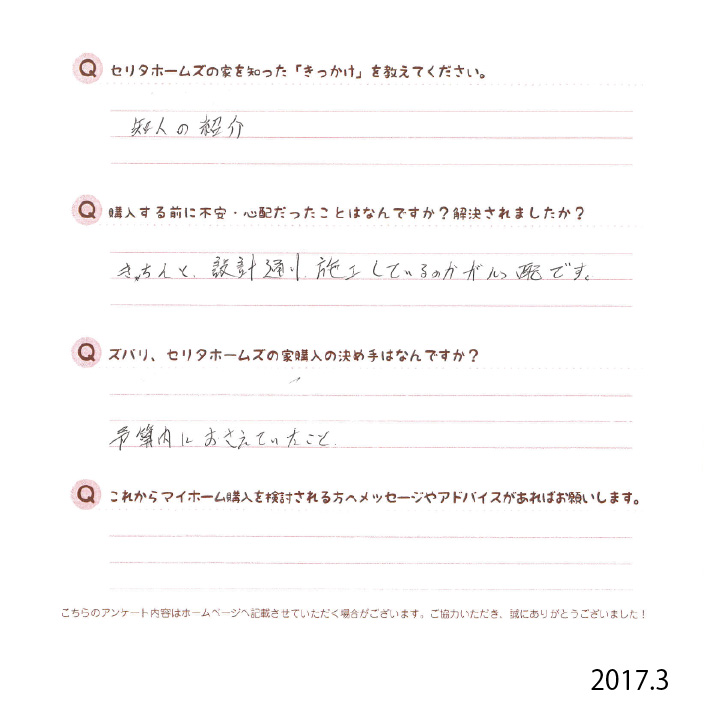 Q セリタホームズの家を知った「きっかけ」を教えてください。
知人の紹介
Q 購入する前に不安・心配だったことはなんですか？解決されましたか？
きちんと、設計通り、施工しているのかが 配です。
Q ズバリ、セリタホームズの家購入の決め手はなんですか？
予算内におさえていたこと。
Q これからマイホーム購入を検討される方へメッセージやアドバイスがあればお願いします。
こちらのアンケート内容はホームページへ記載させていただく場合がございます。ご協力いただき、誠にありがとうございました！
2017.3